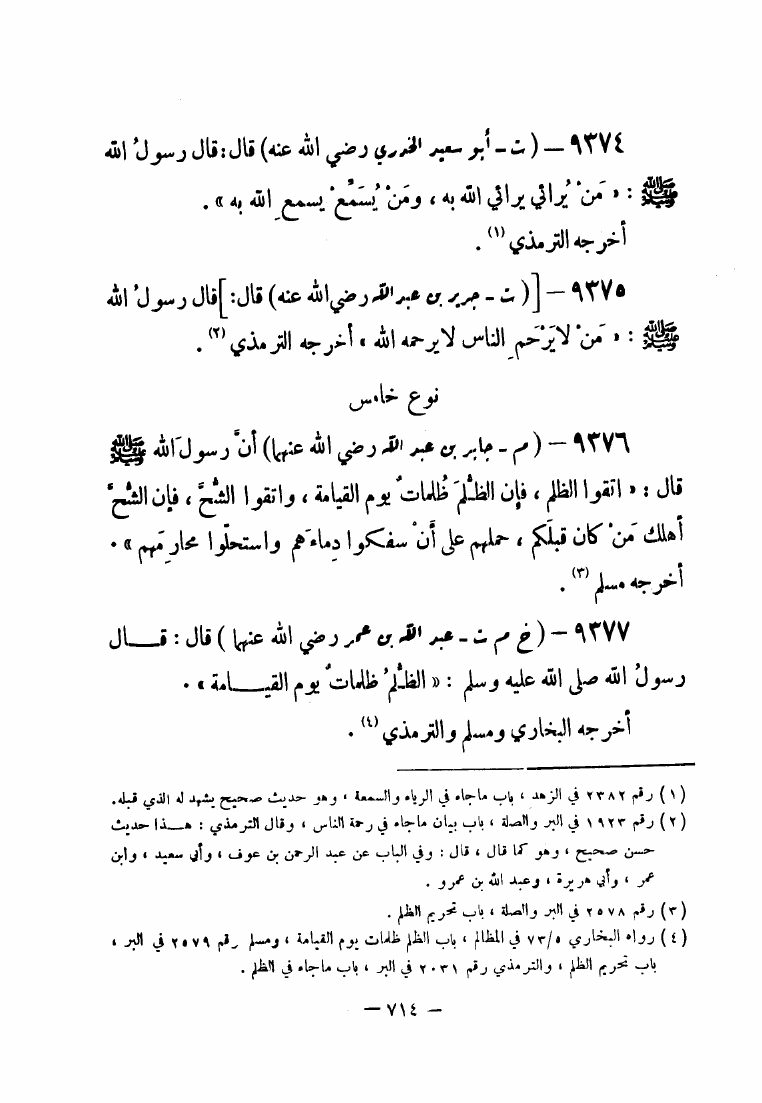 ٩٣٧٤ — ( ت - أبو سعيد الخدري رضي الله عنه ) قال : قال رسولُ الله
ﷺ : « مَنْ يُرائي يرائي الله به ، ومَنْ يُسَمِّعْ يسمعِ الله به » .
أخرجه الترمذي (١) .
٩٣٧٥ — [ ( ت - جرير بن عبد الله رضي الله عنه ) قال : ] قال رسولُ الله
ﷺ : « مَنْ لا يَرْحَمِ الناس لا يرحمه الله » أخرجه الترمذي (٢) .
نوع خامس
٩٣٧٦ — ( م - جابر بن عبد الله رضي الله عنهما ) أنَّ رسولَ الله ﷺ
قال : « اتقوا الظلم ، فإن الظُّلمَ ظُلماتٌ يوم القيامة ، واتقوا الشُّحَّ ، فإن الشُّحَّ
أهلك مَنْ كان قبلَكم ، حملهم على أَنْ سفكوا دِماءَهم واستحلّوا محارِمَهم » .
أخرجه مسلم (٣) .
٩٣٧٧ — ( خ م ت - عبد الله بن عمر رضي الله عنهما ) قال : قــال
رسولُ الله صلى الله عليه وسلم : « الظُّلمُ ظلماتٌ يوم القيــامة » .
أخرجه البخاري ومسلم والترمذي (٤) .
(١) رقم ٢٣٨٢ في الزهد ، باب ماجاء في الرياء والسمعة ، وهو حديث صحيح يشهد له الذي قبله.
(٢) رقم ١٩٢٣ في البر والصلة ، باب بيان ماجاء في رحمة الناس ، وقال الترمذي : هــذا حديث
حسن صحيح ، وهو كما قال ، قال : وفي الباب عن عبد الرحمن بن عوف ، وأبي سعيد ، وابن
عمر ، وأبي هريرة ، وعبد الله بن عمرو .
(٣) رقم ٢٥٧٨ في البر والصلة ، باب تحريم الظلم .
(٤) رواه البخاري ٧٣/٥ في المظالم ، باب الظلم ظلمات يوم القيامة ، ومسلم رقم ٢٥٧٩ في البر ،
باب تحريم الظلم ، والترمذي رقم ٢٠٣١ في البر ، باب ماجاء في الظلم .
— ٧١٤ —